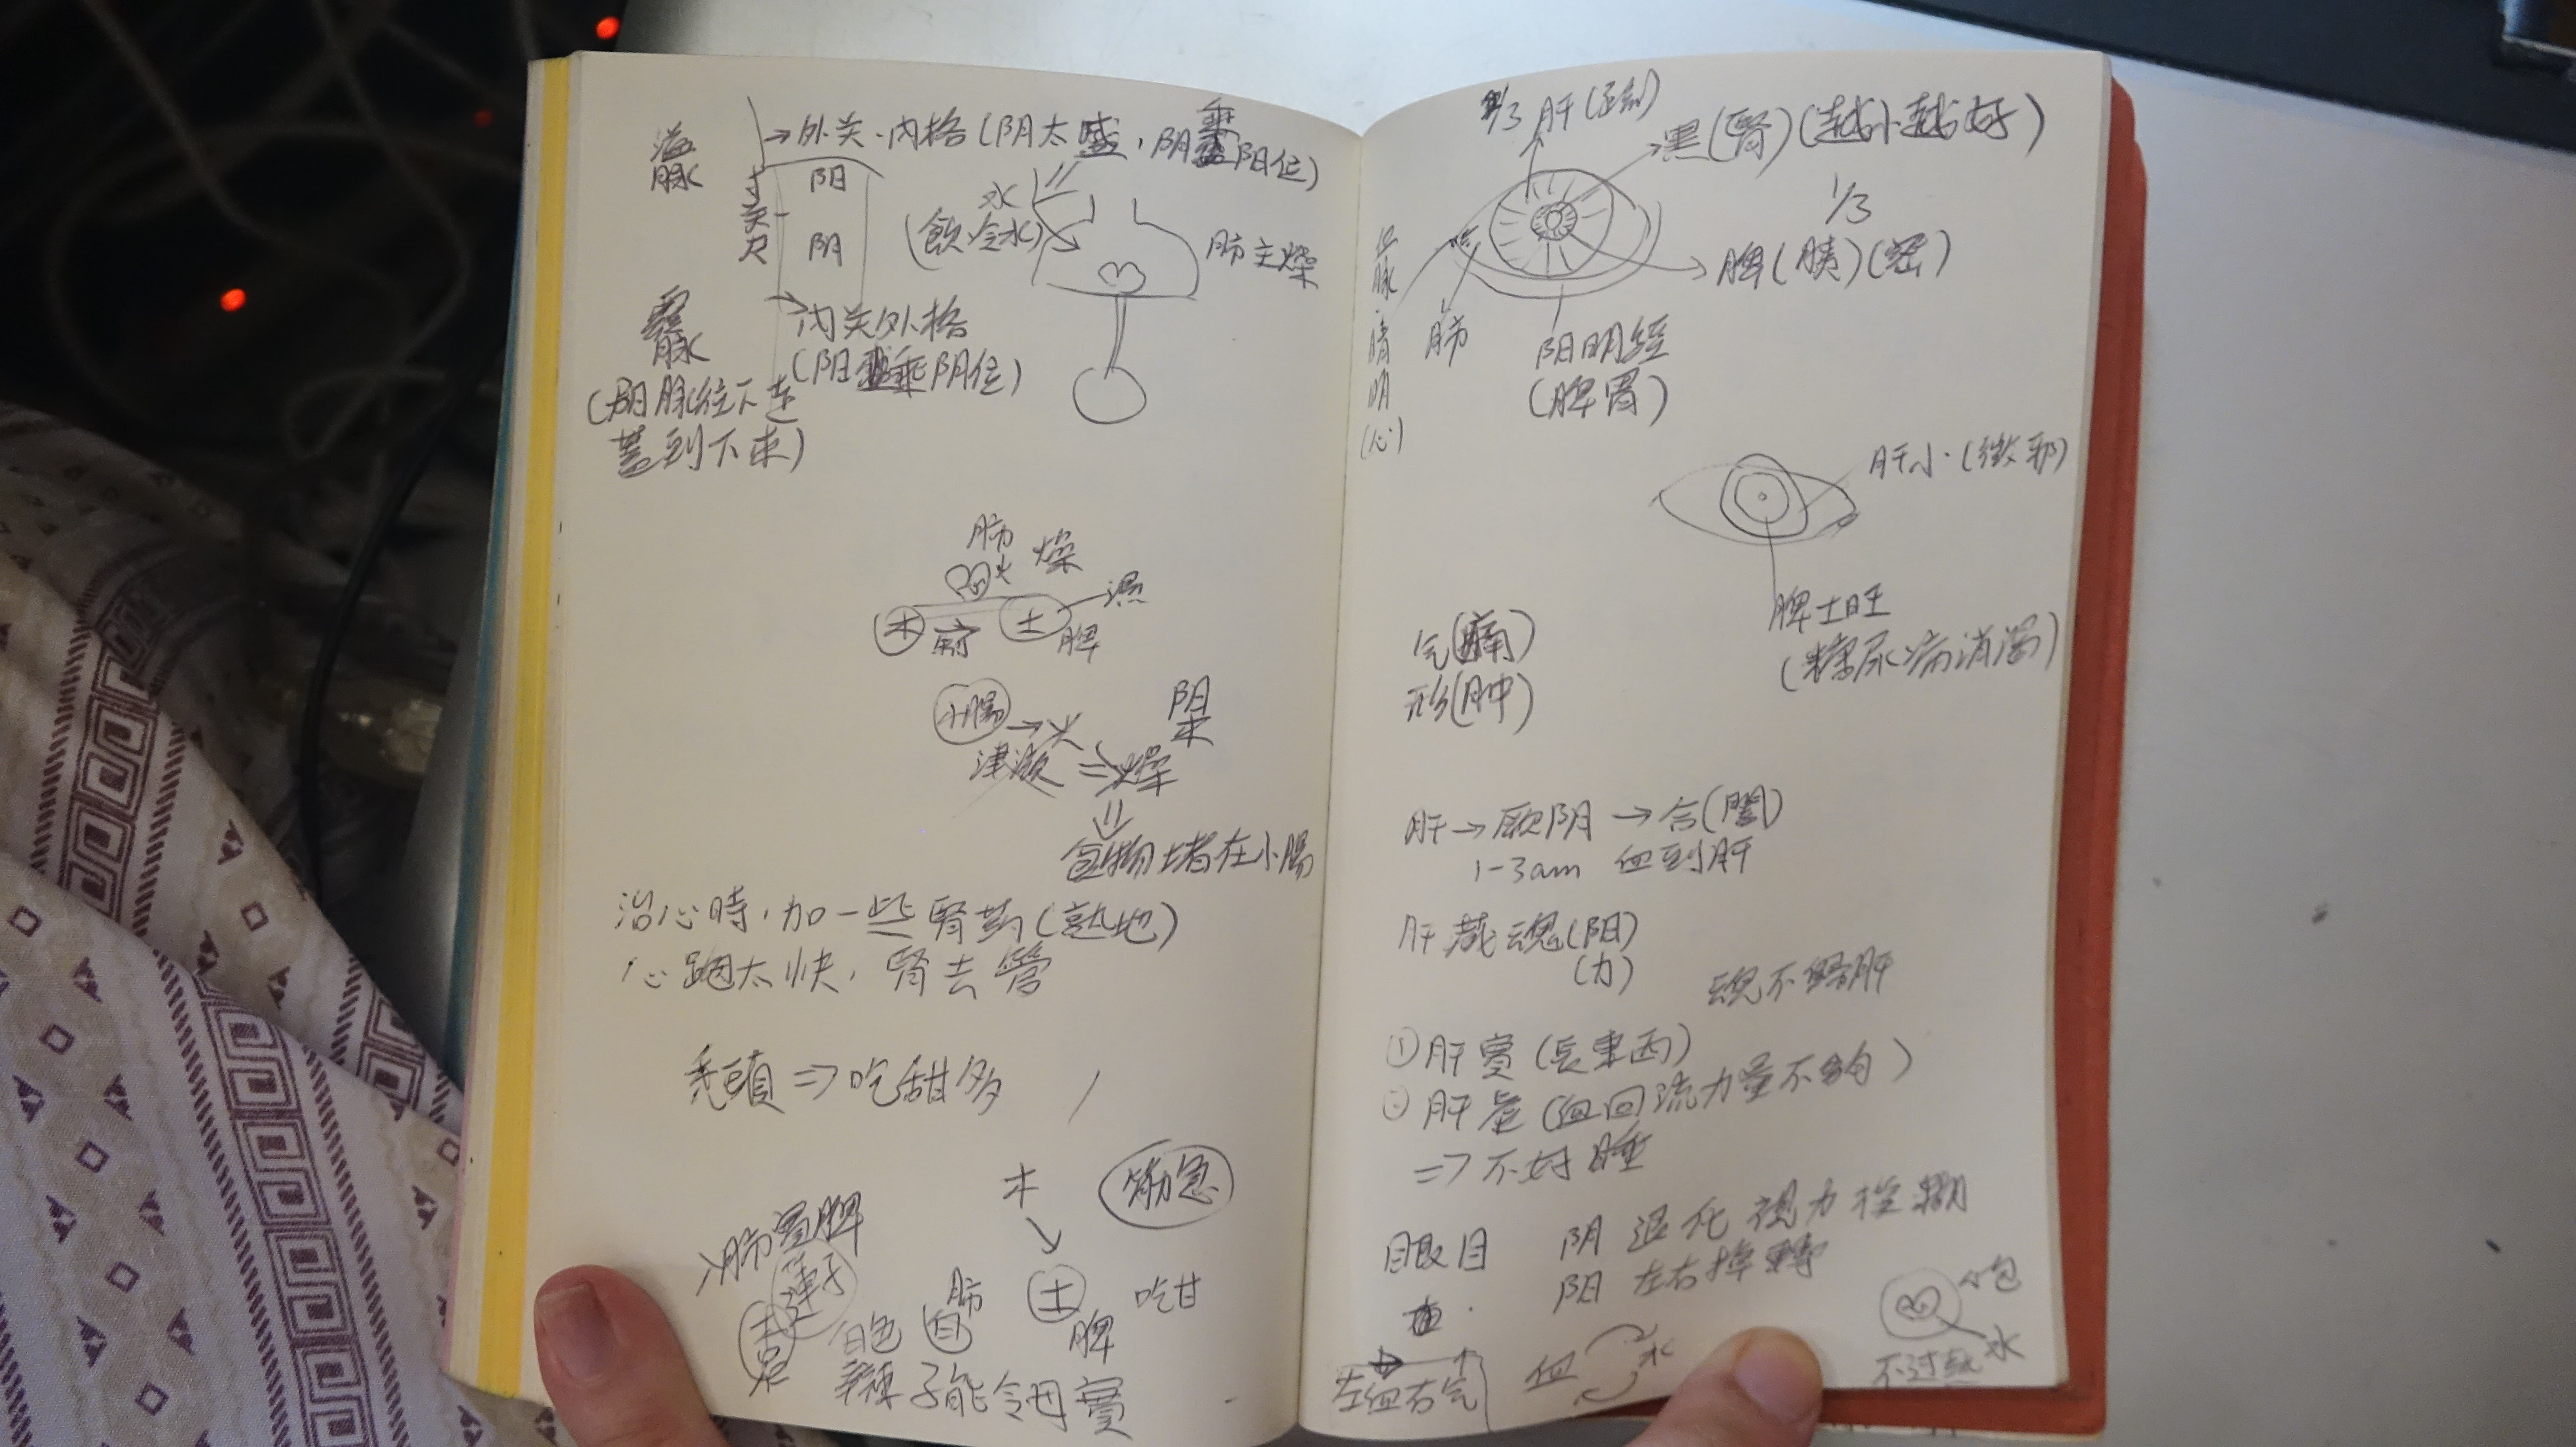 溢脉
→外关·内格(阴太盛,阴乘阳位)
寸关尺
阳
阴
水
(飲冷水)
肺主燥
覆脉
→内关外格
(阳乘阴位)
(阳脉往下走
蓋到下来)
肺
火 燥
木 土 湿
脾
小腸→火
津液⇒燥
阴
⇓
食物堵在小腸
治心時,加一些腎药(熟地)
心跳太快,腎去管
禿頭⇒吃甜多
木
筋急
肺實脾
蓮子
白色 肺 土 脾 吃甘
辣 子能令母實
1/3 肝
→黑(腎)(越小越好)
1/3
→脾(胰)
肺
睛明
(心)
阳明経
(脾胃)
肝小·(微邪)
脾土旺
(糖尿病消渴)
气(痛)
形(肿)
肝→厥阴→合(闔)
1-3am 血到肝
肝藏魂(阳)
(力)
魂不歸肝
① 肝實(長東西)
② 肝虛(血回流力量不夠)
⇒不好睡
眼目 阴 退化 視力模糊
阳 左右掉轉
左血右气
血 水
心包
水
不过熱